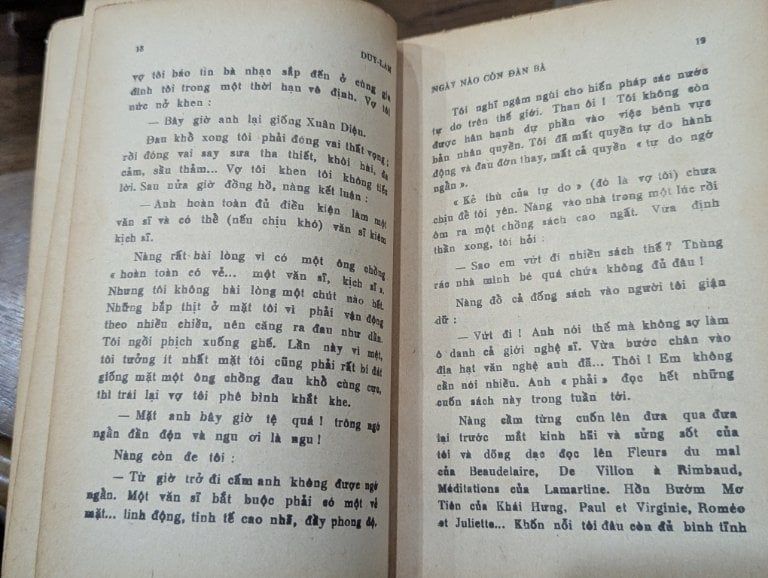 18
DUY-LAM
vợ tôi báo tin bà nhạc sắp đến ở cùng gia
đình tôi trong một thời hạn vô định. Vợ tôi
nức nở khen :
— Bây giờ anh lại giống Xuân Diệu.
Đau khổ xong tôi phải đóng vai thất vọng ;
rồi đóng vai say sưa tha thiết, khôi hài, đa
cảm, sầu thảm... Vợ tôi khen tôi không tiếc
lời. Sau nửa giờ đồng hồ, nàng kết luận :
— Anh hoàn toàn đủ điều kiện làm một
văn sĩ và có thể (nếu chịu khó) văn sĩ kiêm
kịch sĩ.
Nàng rất hài lòng vì có một ông chồng
« hoàn toàn có vẻ... một văn sĩ, kịch sĩ ».
Nhưng tôi không hài lòng một chút nào hết.
Những bắp thịt ở mặt tôi vì phải vận động
theo nhiều chiều, nên căng ra đau như dần.
Tôi ngồi phịch xuống ghế. Lần này vì mệt,
tôi tưởng ít nhất mặt tôi cũng phải rất bi đát
giống mặt một ông chồng đau khổ cùng cực,
thì trái lại vợ tôi phê bình khắt khe.
— Mặt anh bây giờ tệ quá ! trông ngớ
ngần đần độn và ngu ơi là ngu !
Nàng còn đe tôi :
— Từ giờ trở đi cấm anh không được ngớ
ngần. Một văn sĩ bắt buộc phải có một vẻ
mặt... linh động, tinh tế cao nhã, đầy phong độ.
19
NGÀY NÀO CÒN ĐÀN BÀ
Tôi nghĩ ngậm ngùi cho hiến pháp các nước
tự do trên thế giới. Than ôi ! Tôi không còn
được hân hạnh dự phần vào việc bênh vực
bản nhân quyền. Tôi đã mất quyền tự do hành
động và đau đớn thay, mất cả quyền « tự do ngớ
ngần ».
« Kẻ thù của tự do » (đó là vợ tôi) chưa
chịu để tôi yên. Nàng vào nhà trong một lúc rồi
ôm ra một chồng sách cao ngất. Vừa định
thần xong, tôi hỏi :
— Sao em vứt đi nhiều sách thế ? Thùng
rác nhà mình bé quá chứa không đủ đâu !
Nàng đổ cả đống sách vào người tôi giận
dữ :
— Vứt đi ! Anh nói thế mà không sợ làm
ô danh cả giới nghệ sĩ. Vừa bước chân vào
địa hạt văn nghệ anh đã... Thôi ! Em không
cần nói nhiều. Anh « phải » đọc hết những
cuốn sách này trong tuần tới.
Nàng cầm từng cuốn lên đưa qua đưa
lại trước mắt kinh hãi và sửng sốt của
tôi và dõng dạc đọc lên Fleurs du mal
của Beaudelaire, De Villon à Rimbaud,
Méditations của Lamartine. Hồn Bướm Mơ
Tiên của Khái Hưng, Paul et Virginie, Roméo
et Juliette... Khốn nỗi tôi đâu còn đủ bình tĩnh